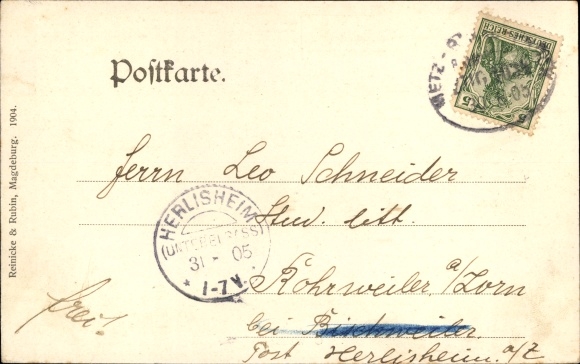 DEUTSCHES REICH
5 5
METZ -
05
Postkarte.
Herrn Leo Schneider
Stud. litt.
HERLISHEIM
(UNTERELSASS)
31 - 05
* 1-7 V. *
Rohrweiler a/Zorn
bei Bischweiler.
Post Herlisheim. a/Z
frei!
Reinicke & Rubin, Magdeburg. 1904.